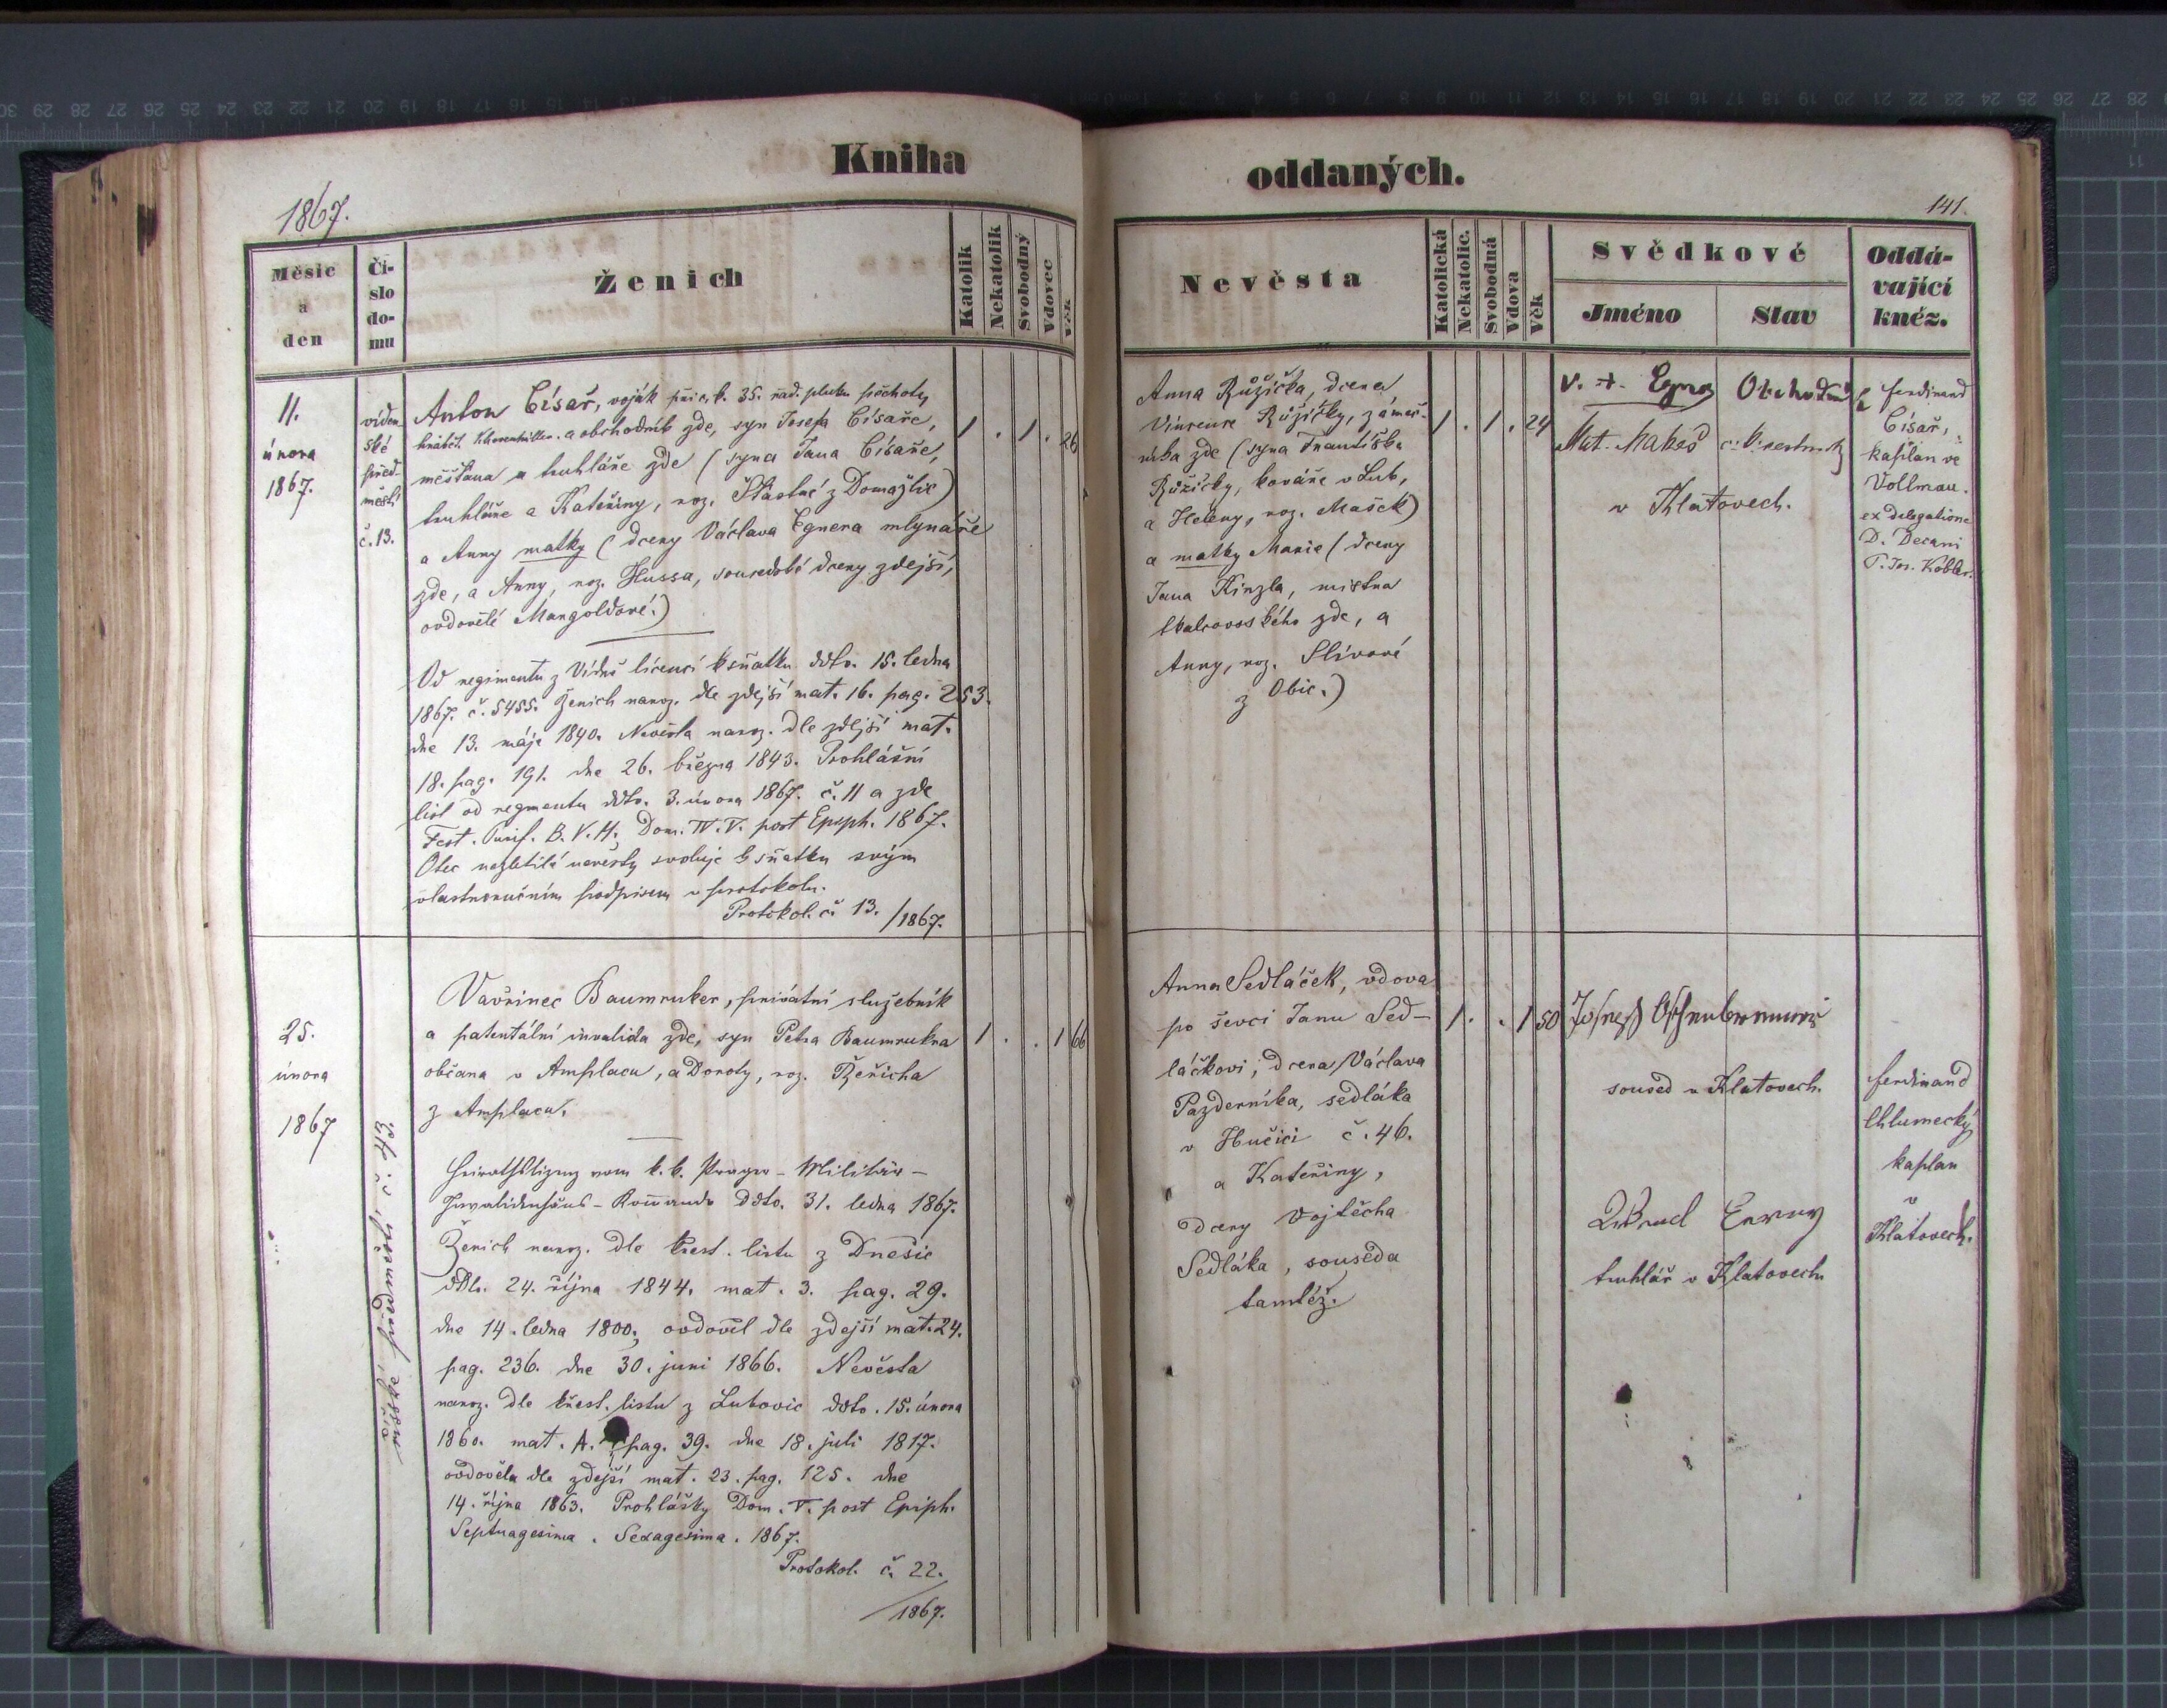 Kniha
oddaných.
1867.
141.
Měsíc
a
den
Čí-
slo
do-
mu
Ženich
Katolík
Nekatolík
Svobodný
Vdovec
Věk
Nevěsta
Katolická
Nekatolic.
Svobodná
Vdova
Věk
Svědkové
Jméno
Stav
Oddá-
vající
kněz.
11.
února
1867.
víden-
ské
před-
městí
č. 13.
Anton Císař, voják při c. k. 35. řad. pluku pěchoty
hrabět. Khevenhüller. a obchodník zde, syn Josefa Císaře,
měšťana a truhláře zde (syna Jana Císaře,
truhláře a Kateřiny, roz. Šťastné z Domažlic)
a Anny matky (dcery Václava Egnera mlynáře
zde, a Anny, roz. Hussa, sousedské dcery zdejší,
ovdovělé Mangoldové.)
Od regimentu z Vídně licencí k sňatku ddto. 15. ledna
1867. č. 5455. Ženich naroz. dle zdejší mat. 16. pag. 253.
dne 13. máje 1840. Nevěsta naroz. dle zdejší mat.
18. pag. 191. dne 26. března 1843. Prohlášní
list od regmentu ddto. 3. února 1867. č. 11 a zde
Fest. Purif. B. V. M., Dom. IV. V. post Epiph. 1867.
Otec nezletilé nevěsty svoluje k sňatku svým
vlastnoručním podpisem v protokolu.
Protokol. č. 13. /1867.
1 . 1 . 26
Anna Růžička, dcera
Vincence Růžičky, zámeč-
níka zde (syna Františka
Růžičky, kováře v Lub,
a Heleny, roz. Mašek)
a matky Marie (dcery
Jana Kinzla, mistra
tkalcovského zde, a
Anny, roz. Slívové
z Obic.)
1 . 1 . 24
Obchodník
Mat. Makeš
v Klatovech.
Ferdinand
Císař,
kaplan ve
Vollmau.
ex delegatione
D. Decani
P. Jos. Kobler.
25.
února
1867
říšské předměstí, č. 43.
Vavřinec Baumruker, privátní služebník
a patentální invalida zde, syn Petra Baumrukra
občana v Amplacu, a Doroty, roz. Řeřicha
z Amplacu.
Heirathslizenz vom k. k. Prager-Militär-
Invalidenhaus-Kom̄ando ddto. 31. ledna 1867.
Ženich naroz. dle křest. listu z Dnešic
ddto. 24. října 1844. mat. 3. pag. 29.
dne 14. ledna 1800, ovdověl dle zdejší mat. 24.
pag. 236. dne 30. juni 1866. Nevěsta
naroz. dle křest. listu z Lukovic ddto. 15. února
1860. mat. A. pag. 39. dne 18. juli 1817.
ovdověla dle zdejší mat. 23. pag. 125. dne
14. října 1863. Prohlášky Dom. V. post Epiph.
Septuagesima. Sexagesima. 1867.
Protokol. č. 22.
/1867.
1 . . 1 66
Anna Sedláček, vdova
po ševci Janu Sed-
láčkovi, dcera Václava
Pazderníka, sedláka
v Hučici č. 46.
a Kateřiny,
dcery Vojtěcha
Sedláka, souseda
tamtéž.
1 . . 1 50
soused v Klatovech
truhlář v Klatovech
Ferdinand
Chlumecký
kaplan
v
Klatovech.